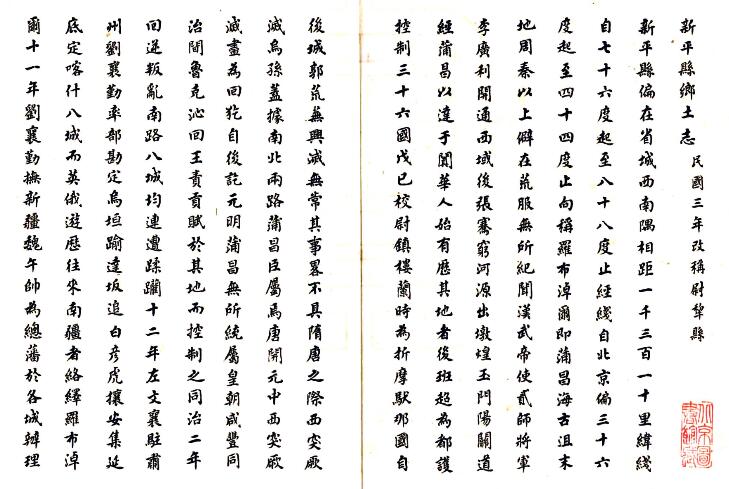 新平縣鄉土志 民國三年改稱尉犂縣
新平縣偏在省城西南隅相距一千三百一十里緯綫
自七十六度起至八十八度止經綫自北京偏三十六
度起至四十四度止向稱羅布淖爾即蒲昌海古沮末
地周秦以上僻在荒服無所紀聞漢武帝使貳師將軍
李廣利開通西域後張騫窮河源出墩煌玉門陽關道
經蒲昌以達于闐華人始有歷其地者後班超為都護
控制三十六國戊巳校尉鎮樓蘭時為折摩馱那國自
後城郭荒蕪興滅無常其事畧不具隋唐之際西突厥
滅烏孫蓋據南北兩路蒲昌臣屬焉唐開元中西突厥
滅盡為回犵自後訖元明蒲昌無所統屬皇朝咸豐同
治間魯克沁回王責貢賦於其地而控制之同治二年
回逆叛亂南路八城均連遭蹂躪十二年左文襄駐肅
州劉襄勤率部勘定烏垣踰達坂追白彥虎攘安集延
底定喀什八城而英俄遊歷往來南疆者絡繹羅布淖
爾十一年劉襄勤撫新疆魏午帥為總藩於各城辦理